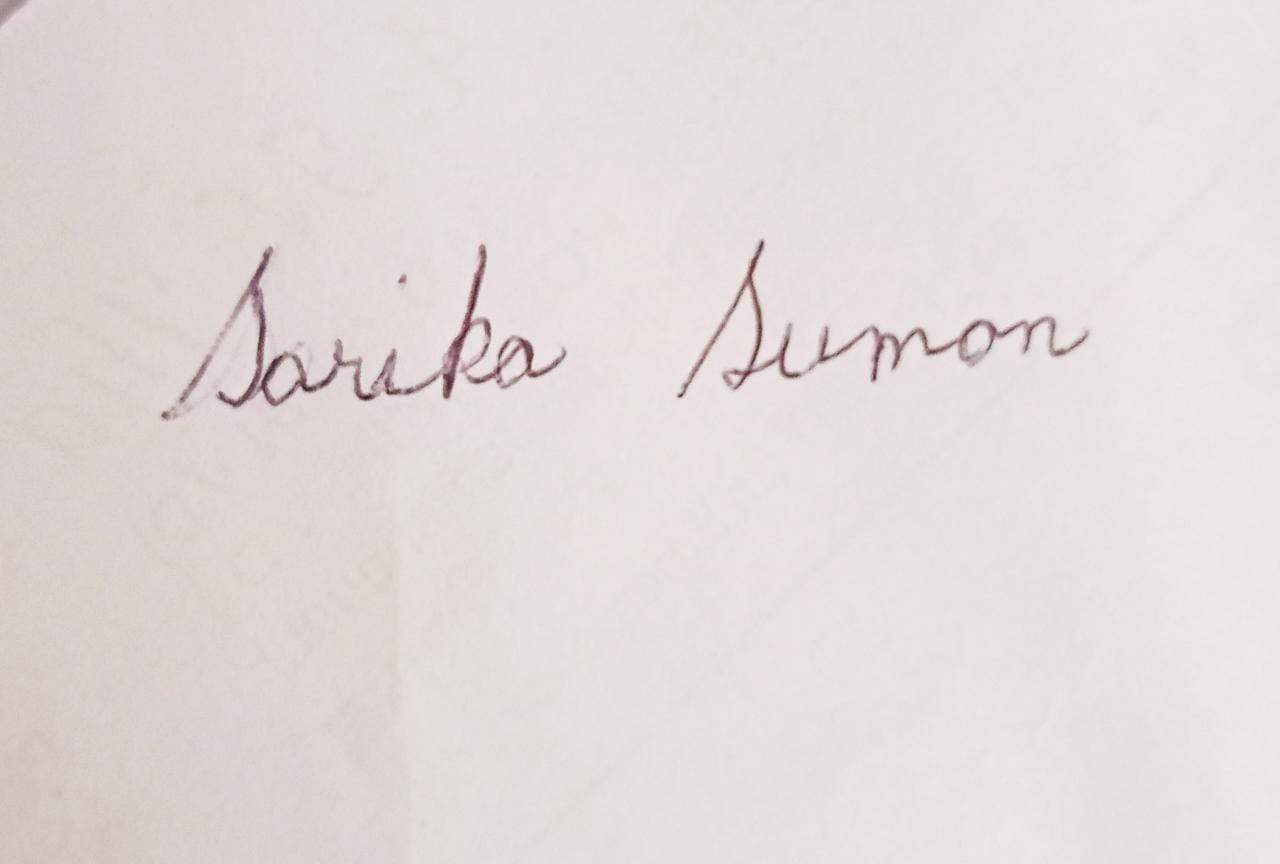 Sarika Suman